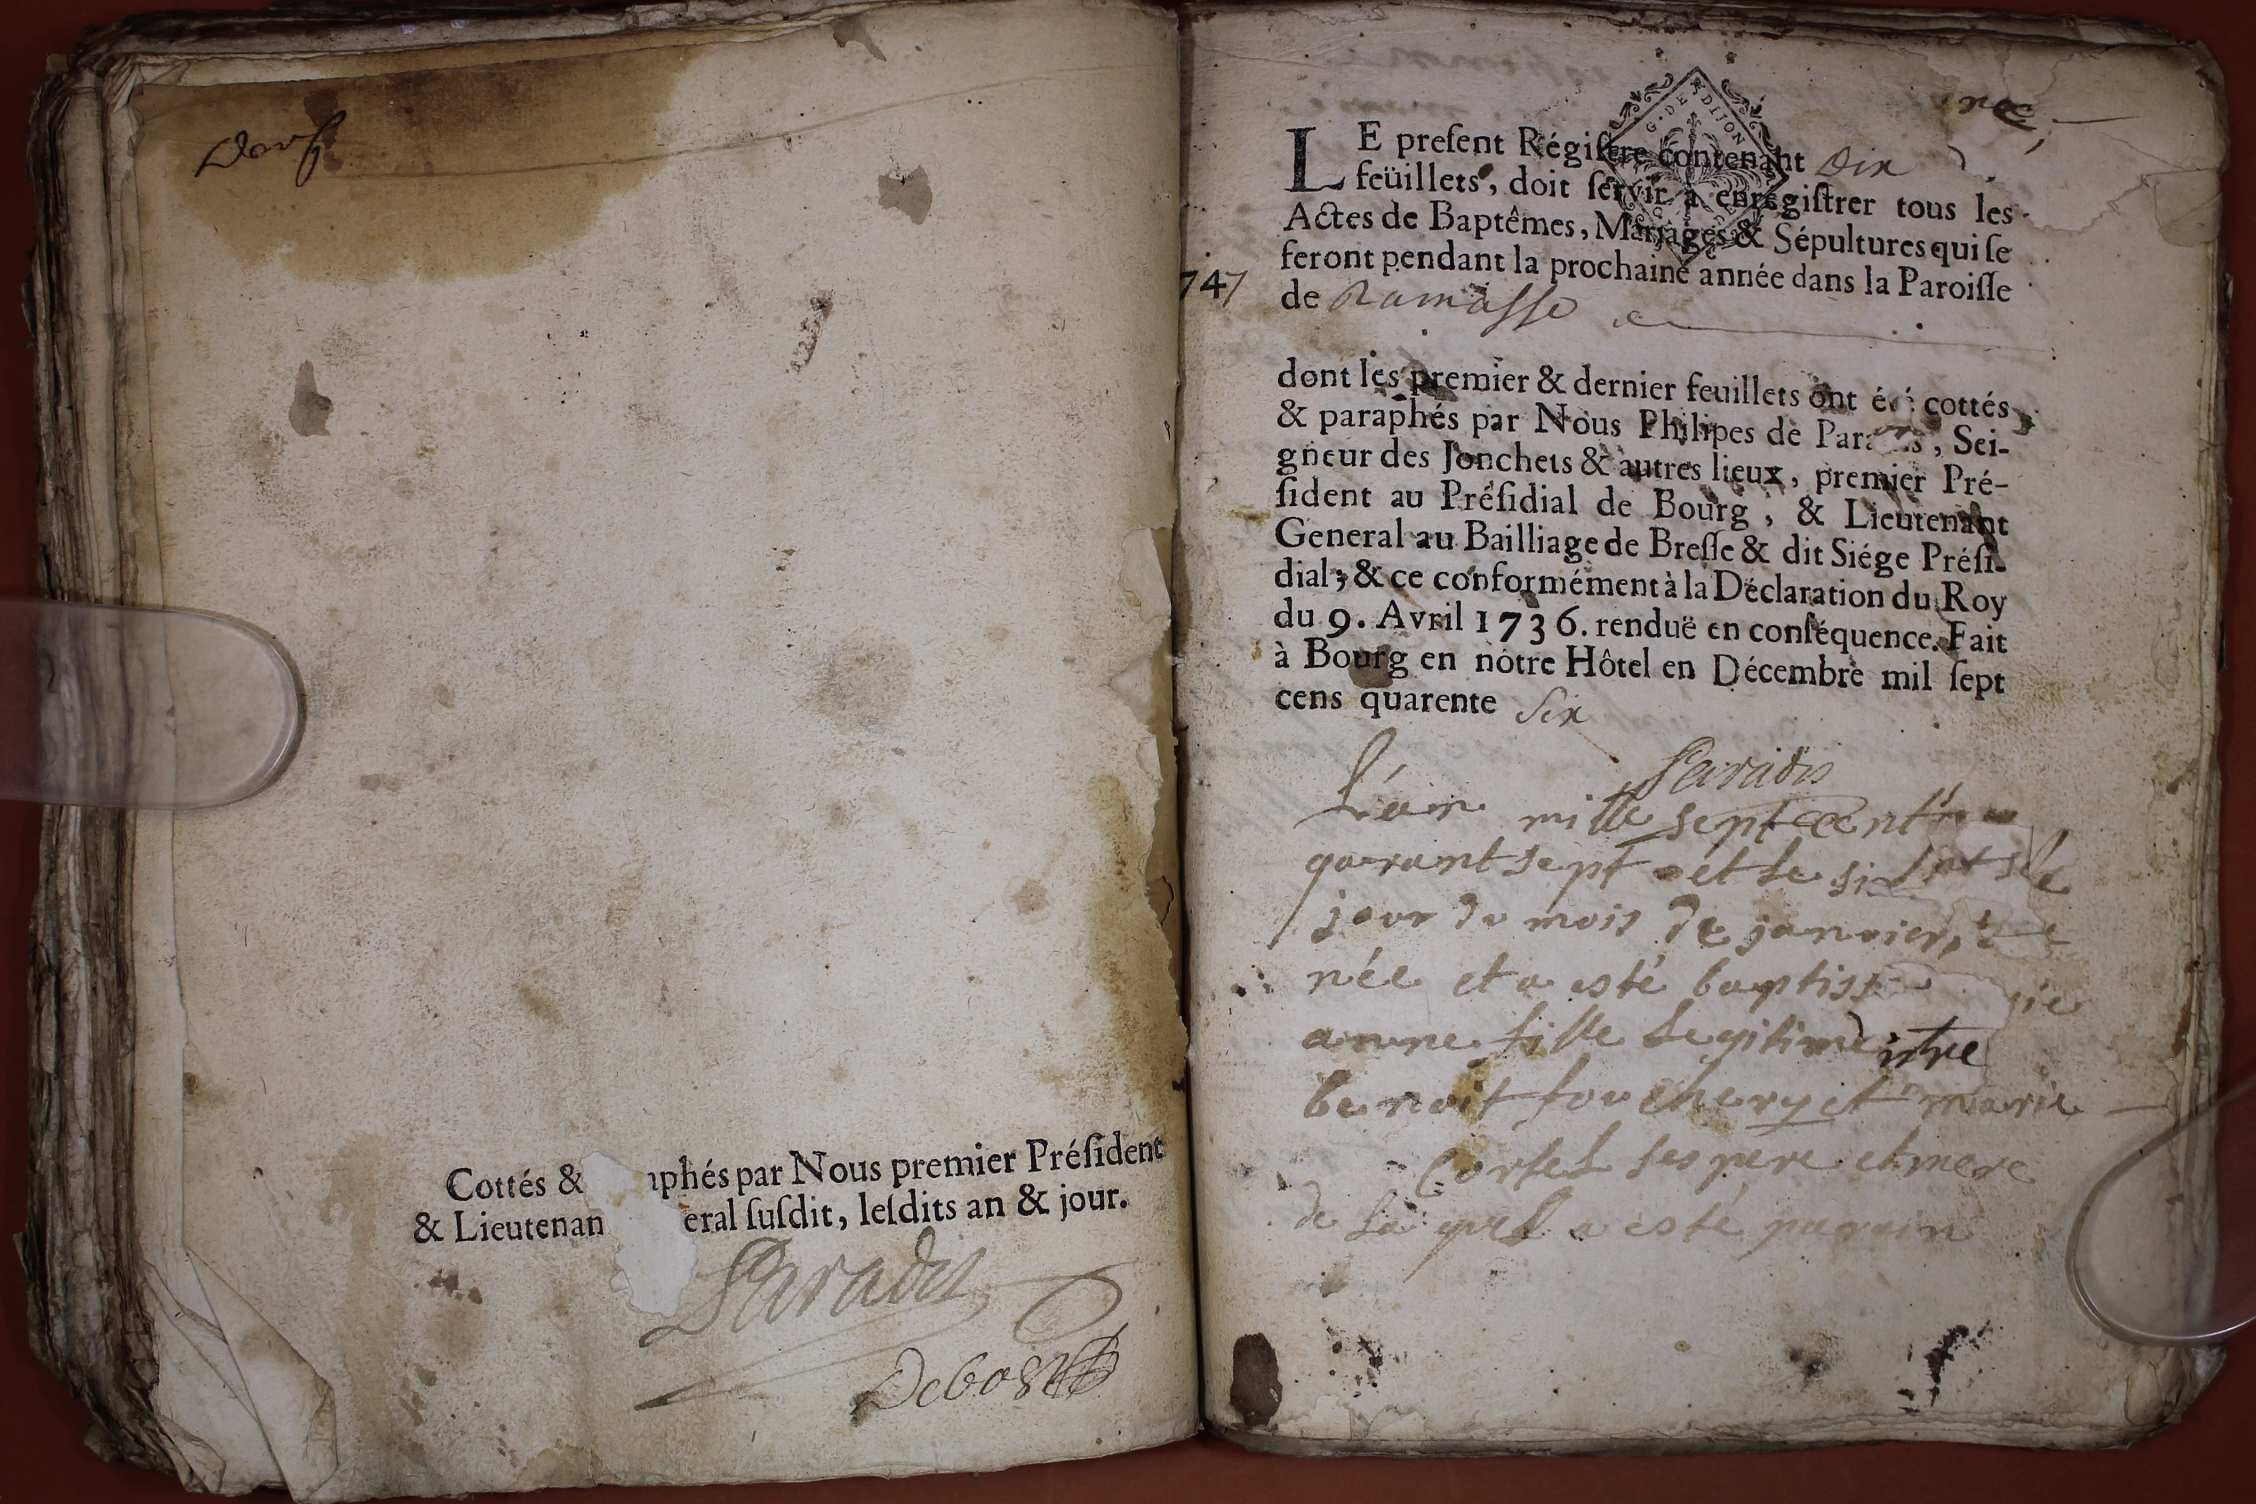 Cottés & phés par Nous premier Préſident
& Lieutenan eral ſuſdit, leſdits an & jour.
Paradis
Debost
G. DE DIJON
LE preſent Régiſtre contenant Dix
feüillets, doit ſervir à enregiſtrer tous les
Actes de Baptêmes, Mariages & Sépultures qui ſe
feront pendant la prochaine année dans la Paroiſſe
747
de Ramasse
dont les premier & dernier feuillets ont été cottés
& paraphés par Nous Philipes de Para s, Sei-
gneur des Jonchets & autres lieux, premier Pré-
ſident au Préſidial de Bourg, & Lieutenant
General au Bailliage de Breſſe & dit Siége Préſi-
dial; & ce conformément à la Déclaration du Roy
du 9. Avril 1736. renduë en conſéquence. Fait
à Bourg en nôtre Hôtel en Décembre mil ſept
cens quarente Six
Paradis
L'an mille septcent
quarant sept et le
jour du mois de janvier,
née et a esté
anne fille legitime
benoit fouchery et marie
ses pere et mere
de la quel a esté parain